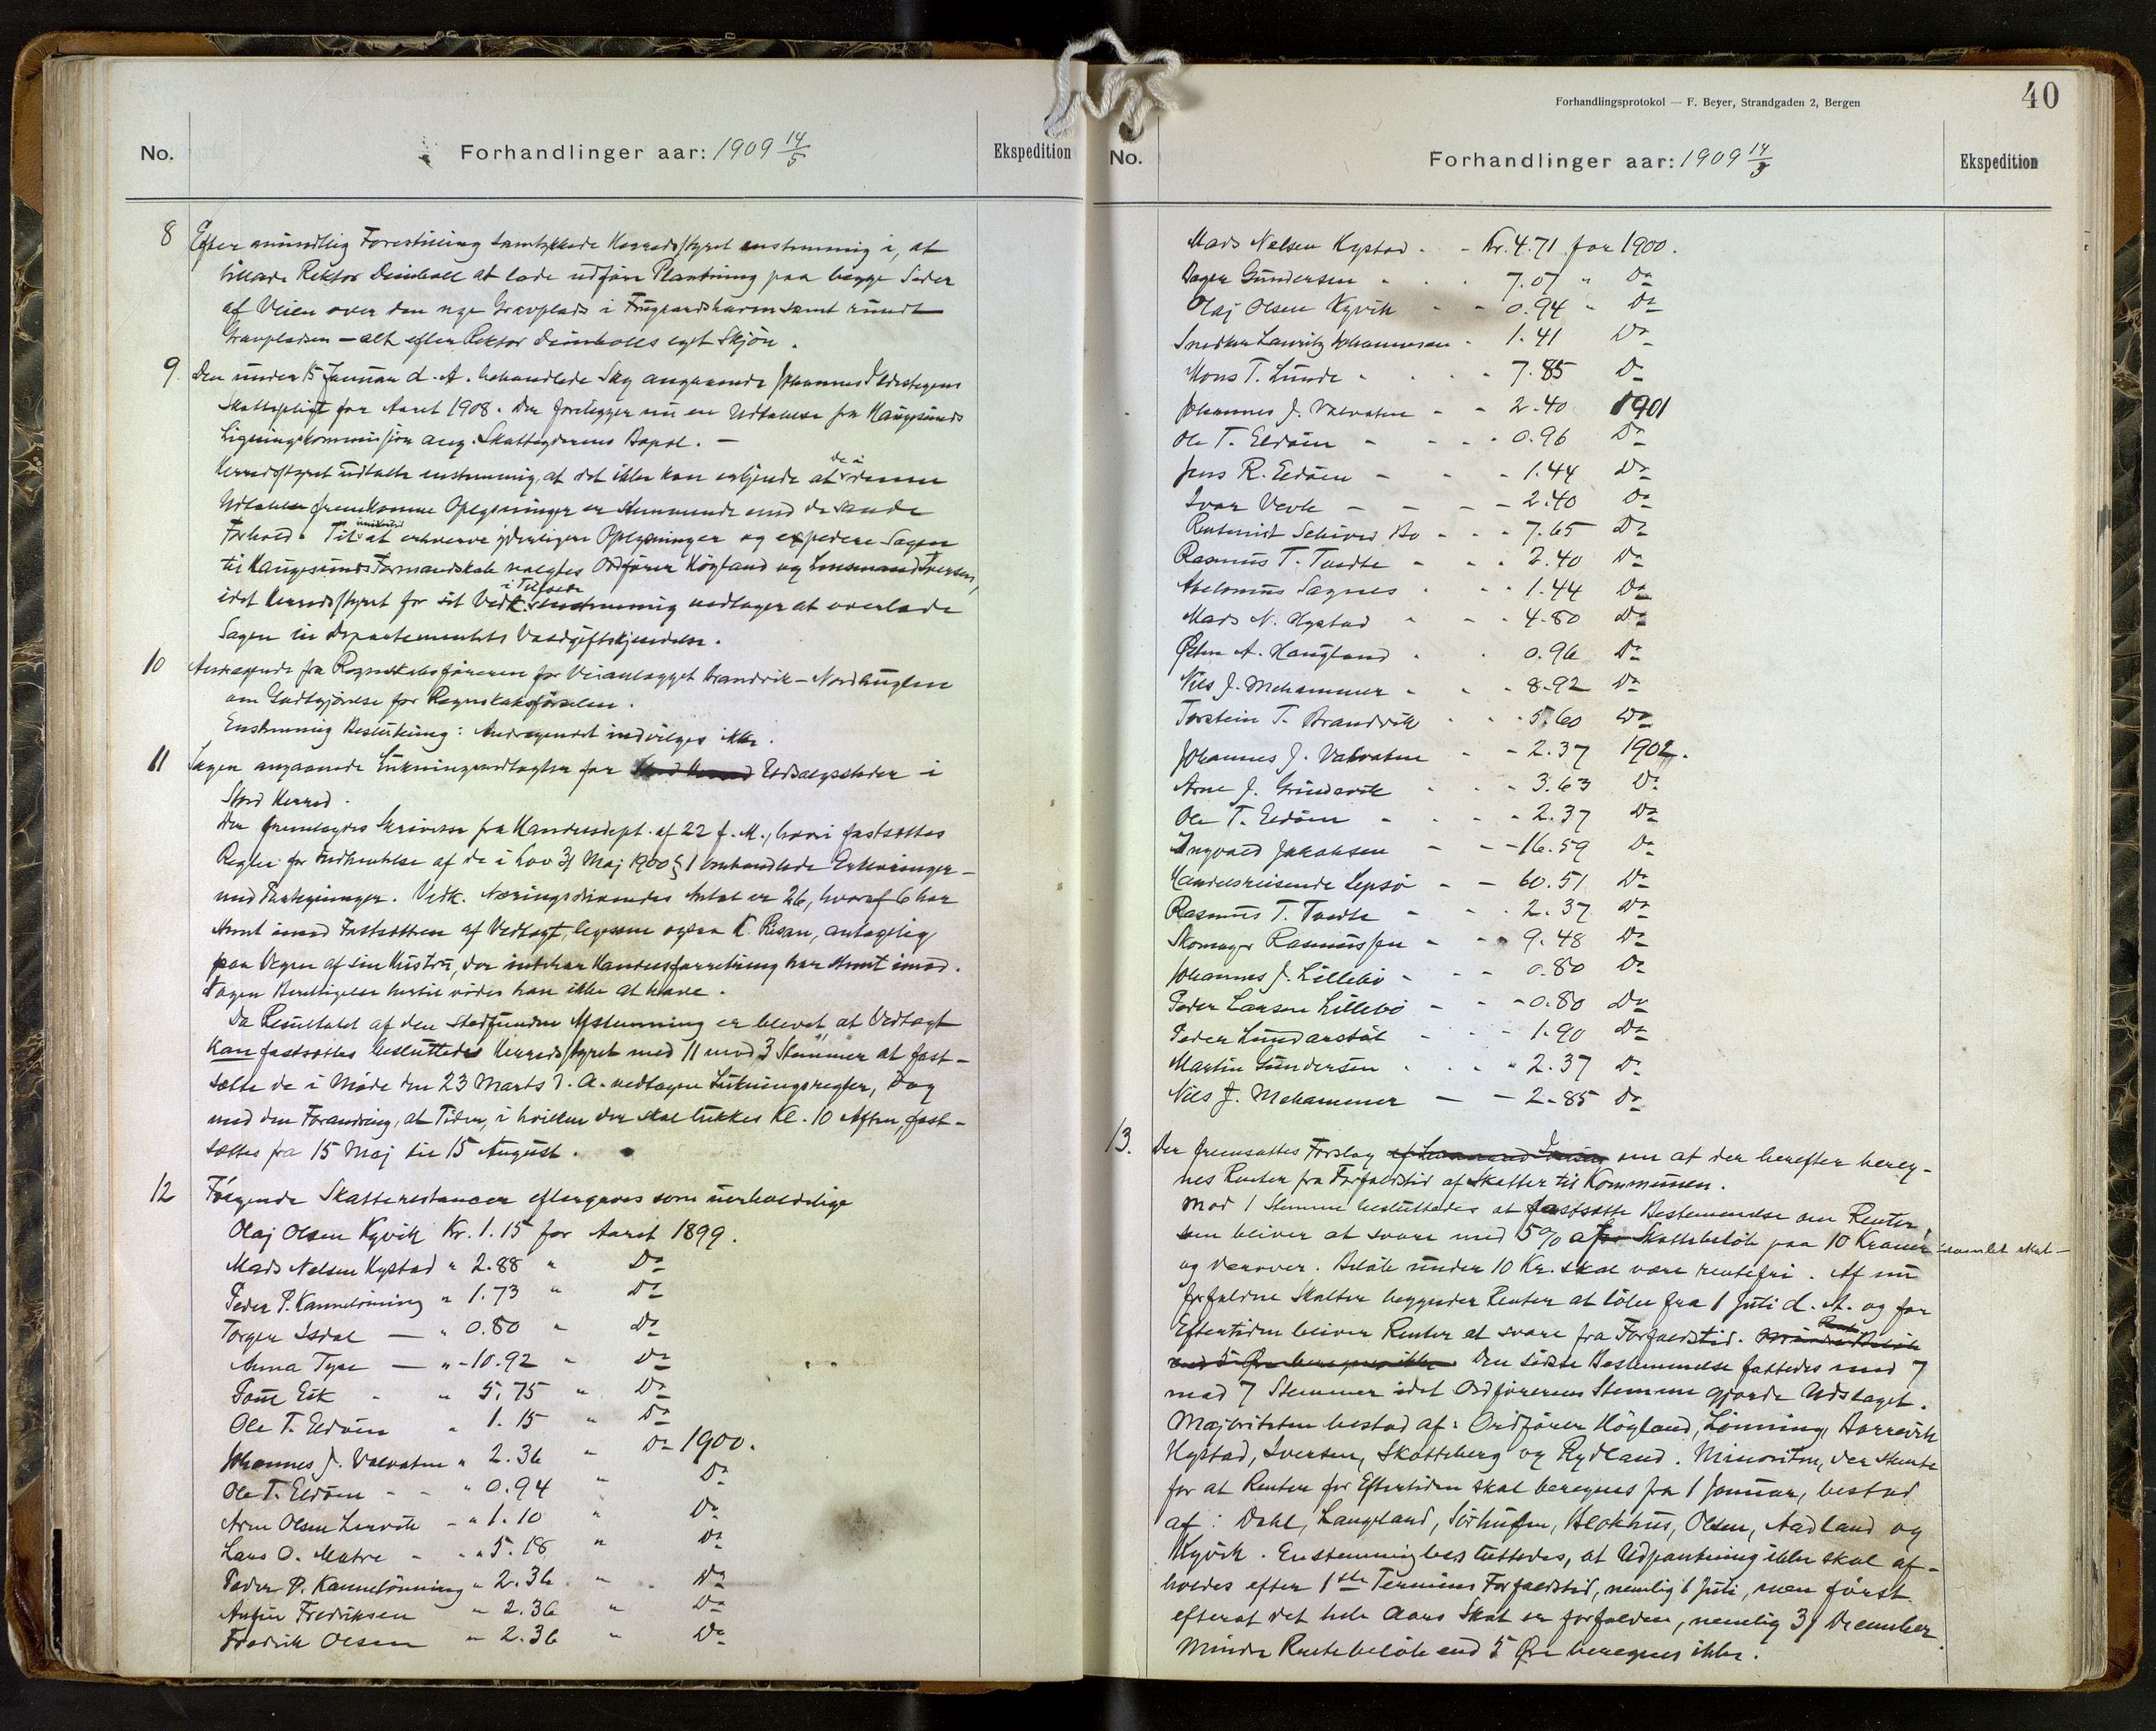 No.
Forhandlinger aar: 1909 14/5
Ekspedition
8 Efter mundtlig Forestilling samtykkede Herredsstyret enstemmig i, at
tillade Rektor Deinboll at lade udføre Plantning paa begge Sider
af Veien over den nye Gravplads i Frugaardshavn samt rundt
Gravpladsen – alt efter Rektor Deinbolls eget Skjøn.
9. Den under 15 Januar d. A. behandlede Sag angaaende Johannes
Skattepligt for Aaret 1908. Der foreligger nu en Udtalelse fra Haugesunds
Ligningskommission ang. Skatteyderens Bopæl. –
Herredsstyret udtalte enstemmig, at det ikke kan erkjende at de i denne
Udtalelse fremkomne Oplysninger er stemmende med de sande
Forhold. Til at erhverve yderligere Oplysninger og expedere Sagen
til Haugesunds Formandskab valgtes Ordfører Høgland og Lensmand Iversen,
idet Herredsstyret for sit Vedk. i Tilfælde enstemmig vedtager at overlade
Sagen til Departementets Vaadgiftskjendelse.
10 Andragende fra Regnskabsføreren for Veianlægget Grandvik – Nordhuglen
om Godtgjørelse for Regnskabsførselen.
Enstemmig Beslutning: Andragendet indvilges ikke.
11 Sagen angaaende Lukningsvedtægter for Stord Herred Udsalgssteder i
Stord Herred.
Der fremlagdes Skrivelse fra Handelsdept. af 22 f. M., hvori fastsættes
Regler for Indhentelse af de i Lov 31 Maj 1900 § 1 omhandlede Erklæringer –
med Paategninger. Vedk. Næringsdrivendes Antal er 26, hvoraf 6 har
stemt imod Fastsættelsen af Vedtægt, ligesom ogsaa C. Risan, antagelig
paa Vegne af sin Hustru, der indehar Handelsforretning har stemt imod.
Nogen Berettigelse hertil vides han ikke at have.
Da Resultatet af den stedfundne Afstemning er blevet at Vedtægt
kan fastsættes besluttedes Herredsstyret med 11 mod 3 Stemmer at fast-
sætte de i Møde den 23 Marts d. A. vedtagne Lukningsregler, dog
med den Forandring, at Tiden, i hvilken der skal lukkes Kl. 10 Aften, fast-
sættes fra 15 Maj til 15 August.
12 Følgende Skatterestancer eftergaves som uerholdelige
Olaj Olsen Kyvik Kr. 1.15 for Aaret 1899.
Mads Nelsen Hystad " 2.88 " Do
Peder P. Kannelønning " 1.73 " Do
Torger Isdal — " 0.80 " Do
Anna Tyse — " - 10.92 " Do
Tom Eik - " 5.75 " Do
Ole T. Eldøen " 1.15 " Do
Johannes J. Valvatne " 2.36 " Do 1900.
Ole T. Eldøen - - " 0.94 " Do
Arne Olsen Lervik - " 1.10 " Do
Lars O. Matre - - " 5.18 " Do
Peder P. Kannelønning " 2.36 " Do
Anfin Fredriksen " 2.36 " Do
Fredrik Olsen " 2.36 " Do
Forhandlingsprotokol — F. Beyer, Strandgaden 2, Bergen
40
No.
Forhandlinger aar: 1909 14/5
Ekspedition
Mads Nelsen Hystad - - Kr. 4.71 for 1900.
Dager Gundersen - - - 7.07 " Do
Olaj Olsen Kyvik - - 0.94 " Do
Snedker Lauritz Johannesen - 1.41 Do
Mons T. Lunde - - - 7.85 Do
Johannes J. Valvatne - - 2.40 1901
Ole T. Eldøen - - - 0.96 Do
Jens R. Eldøen - - - 1.44 Do
Ivar Vevle - - - - 2.40 Do
Rentenist Schives Bo - - - 7.65 Do
Rasmus T. Tvedte - - - 2.40 Do
Abelonus Sagnes - - - 1.44 Do
Mads N. Hystad - - - 4.80 Do
Østen A. Haugland - - 0.96 Do
Nils J. Mehammer - - - 8.92 Do
Torstein T. Brandvik - - - 5.60 Do
Johannes J. Valvatne - - 2.37 1902.
Arne J. Grindevik - - - 3.63 Do
Ole T. Eldøen - - - 2.37 Do
Ingvald Jakobsen - - - 16.59 Do
Handelsreisende Lepsø - - 60.51 Do
Rasmus T. Tvedte - - - 2.37 Do
Skomager Rasmussen - - 9.48 Do
Johannes J. Lillebø - - - 0.80 Do
Peder Larsen Lillebø - - - 0.80 Do
Peder Lundarstøl - - - 1.90 Do
Martin Gundersen - - - 2.37 Do
Nils J. Mehammer - - 2.85 Do
13. Der fremsattes Forslag af Lensmand Iversen om at der herefter bereg-
nes Renter fra Forfaldstid af Skatter til Kommunen.
Mod 1 Stemme besluttedes at fastsætte Bestemmelse om Renter,
som bliver at svare med 5 % af Skattebeløb paa 10 Kroner samlet skat –
og derover. Beløb under 10 Kr. skal være rentefri. Af nu
forfaldne Skatter begynder Renter at løbe fra 1 Juli d. A. og for
Eftertiden bliver Renter at svare fra Forfaldstid. Mindre Rentebeløb
end 5 Øre beregnes ikke. Den sidste Bestemmelse fattedes med 7
mod 7 Stemmer idet Ordførerens Stemme gjorde Udslaget.
Majoriteten bestod af: Ordfører Høgland, Lønning, Aarrevik
Hystad, Iversen, Skatteberg og Rydland. Minoriteten, der stemte
for at Renter for Eftertiden skal beregnes fra 1 Januar, bestod
af: Dahl, Langeland, Sørhuglen, Blokhus, Olsen, Aadland og
Kyvik. Enstemmig besluttedes, at Udpantning ikke skal af-
holdes efter 1ste Termins Forfaldstid, nemlig 1 Juli, men først
efterat det hele Aars Skat er forfalden, nemlig 31 December.
Mindre Rentebeløb end 5 Øre beregnes ikke.